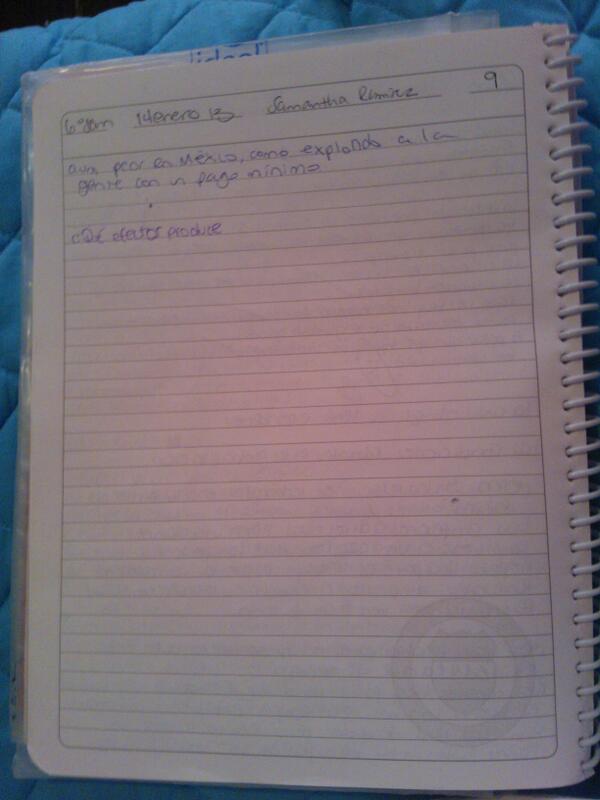 ideal
6° sem 14 enero 13 Samantha Ramirez 9
aun peor en México, como explondo a la
gente con un pago minimo
¿Qué efectos produce